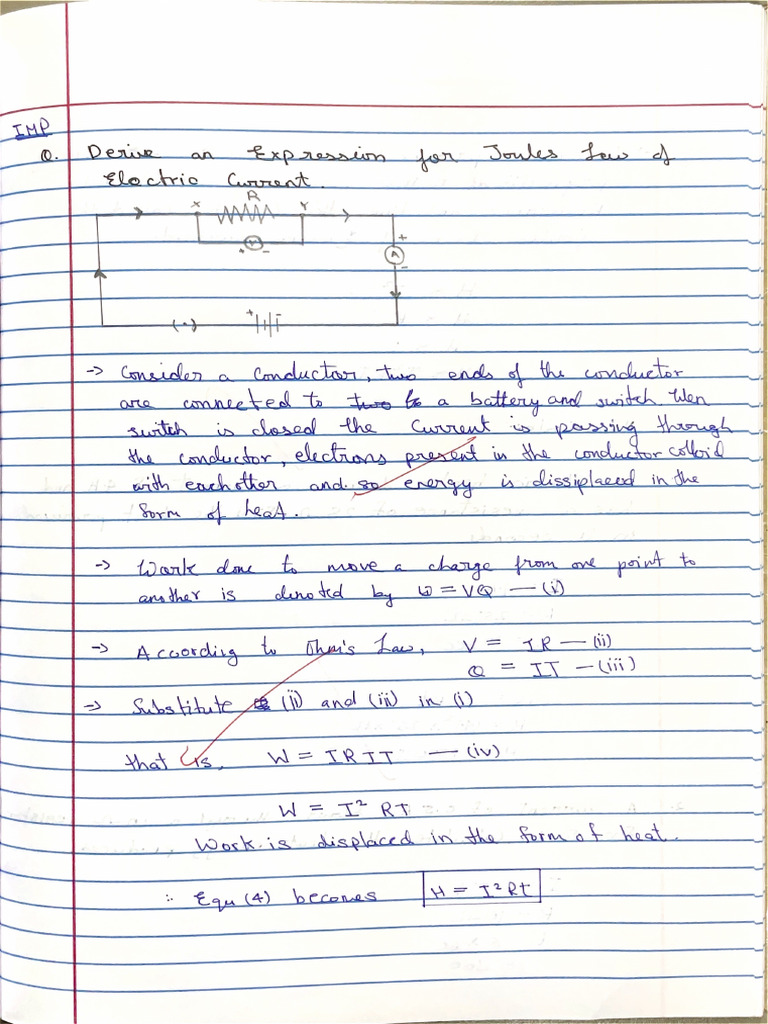 IMP
Q. Derive an Expression for Joules Law of
Electric Current.
R
X Y
+ V -
+
A
-
(•)
+ -
-> Consider a conductor, two ends of the conductor
are connected to two to a battery and switch Wen
switch is closed the Current is passing through
the conductor, electrons present in the conductor colloid
with eachother and so energy is dissiplaced in the
form of heat.
-> Work done to move a charge from one point to
another is denoted by W = VQ — (i)
-> According to Ohm's Law, V = IR — (ii)
Q = IT — (iii)
-> Substitute (ii) and (iii) in (i)
that is, W = IRIT — (iv)
W = I² RT
Work is displaced in the form of heat.
∴ Equ (4) becomes H = I²Rt